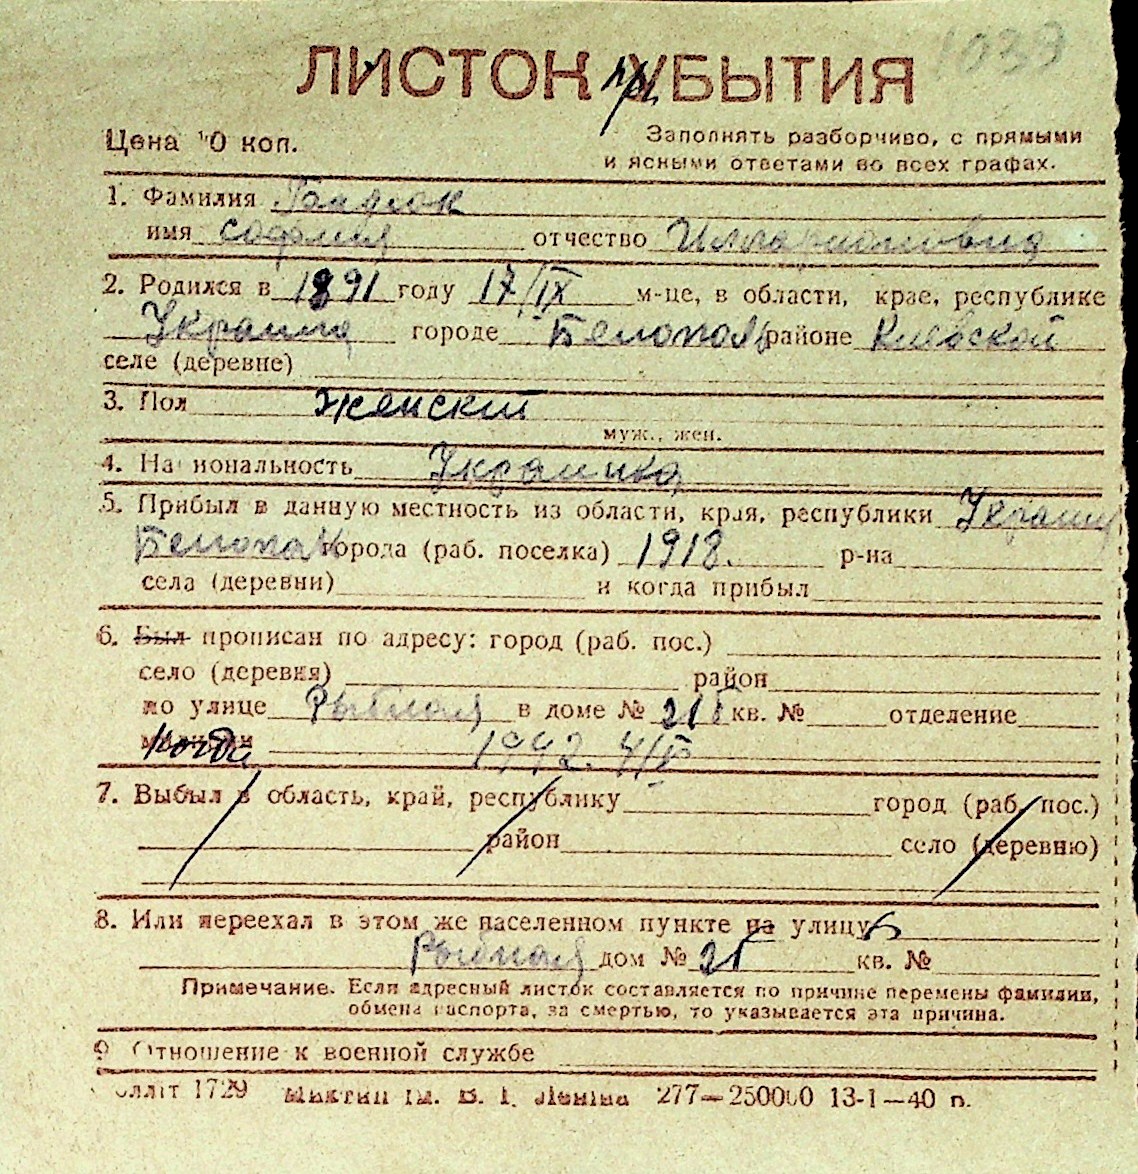 1039
ЛИСТОК при УБЫТИЯ
Цена 10 коп. Заполнять разборчиво, с прямыми
и ясными ответами во всех графах.
1. Фамилия
имя София отчество Илларионовна
2. Родился в 1891 году 17/IX м-це, в области, крае, республике
Украина городе Белополь районе Киевской
селе (деревне)
3. Пол Женский
муж., жен.
4. Национальность Украинка
5. Прибыл в данную местность из области, края, республики Украины
Белополь города (раб. поселка) 1918. р-на
села (деревни) и когда прибыл
6. Был прописан по адресу: город (раб. пос.)
село (деревня) район
по улице Рыбная в доме № 21б кв. № отделение
когда 1942. 4/
7. Выбыл в область, край, республику город (раб. пос.)
район село (деревню)
8. Или переехал в этом же населенном пункте на улицу
Рыбная дом № кв. №
Примечание. Если адресный листок составляется по причине перемены фамилии,
обмена паспорта, за смертью, то указывается эта причина.
9 Отношение к военной службе
1729 ім. В. І. Леніна 277—250000 13-1—40 р.